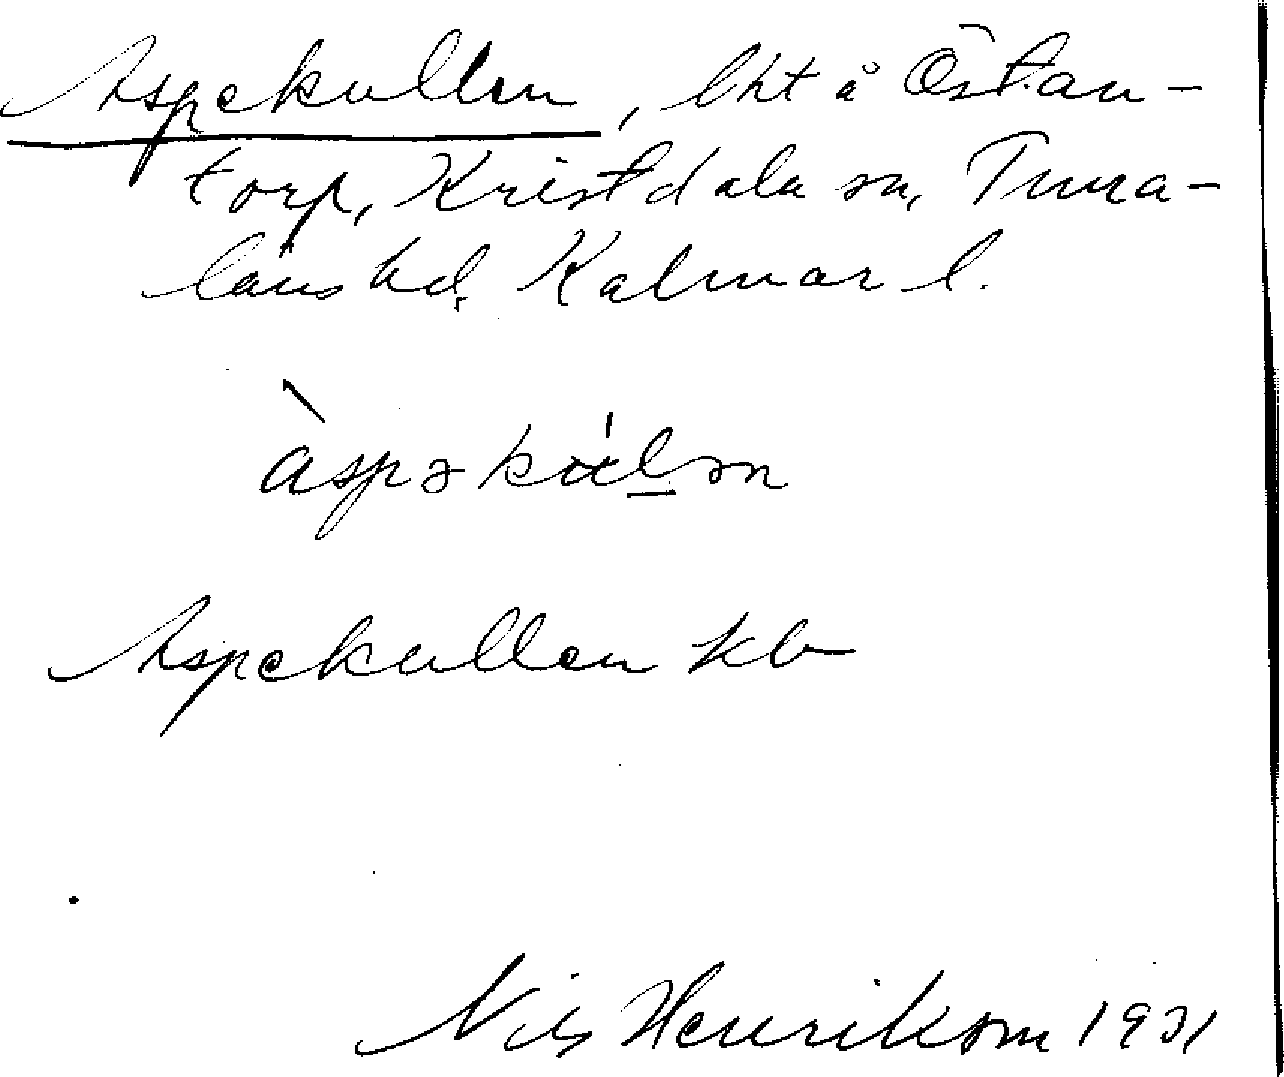 Aspekullen, lht å Östan-
torp, Kristdala sn, Tuna-
läns hd. Kalmar l.
àspəkúlən
Aspekullen kb
Nils Henrikson 1931